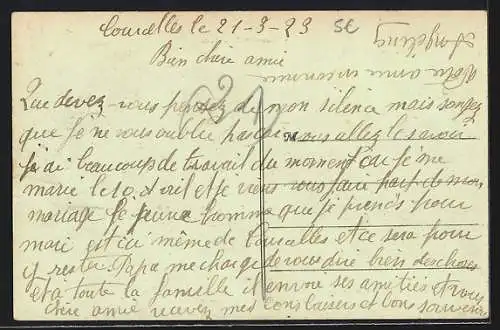 Courcelles le 21-3-23
Bien chère amie
Que devez-vous pensez de mon silence mais songez
que Je ne vous oublie pas car vous allez le savoir
je ai beaucoup de travail du moment car Je me
marie le 10 Avril et Je vous vous faire part de mon
mariage le jeune homme que je prends pour
mari est ici même de Courcelles et ce sera pour
y rester. Papa me charge de vous dire bien des choses
et a toute la famille il envoie ses amitiés et vous
chère amie recevez mes bons baisers et bons souvenirs